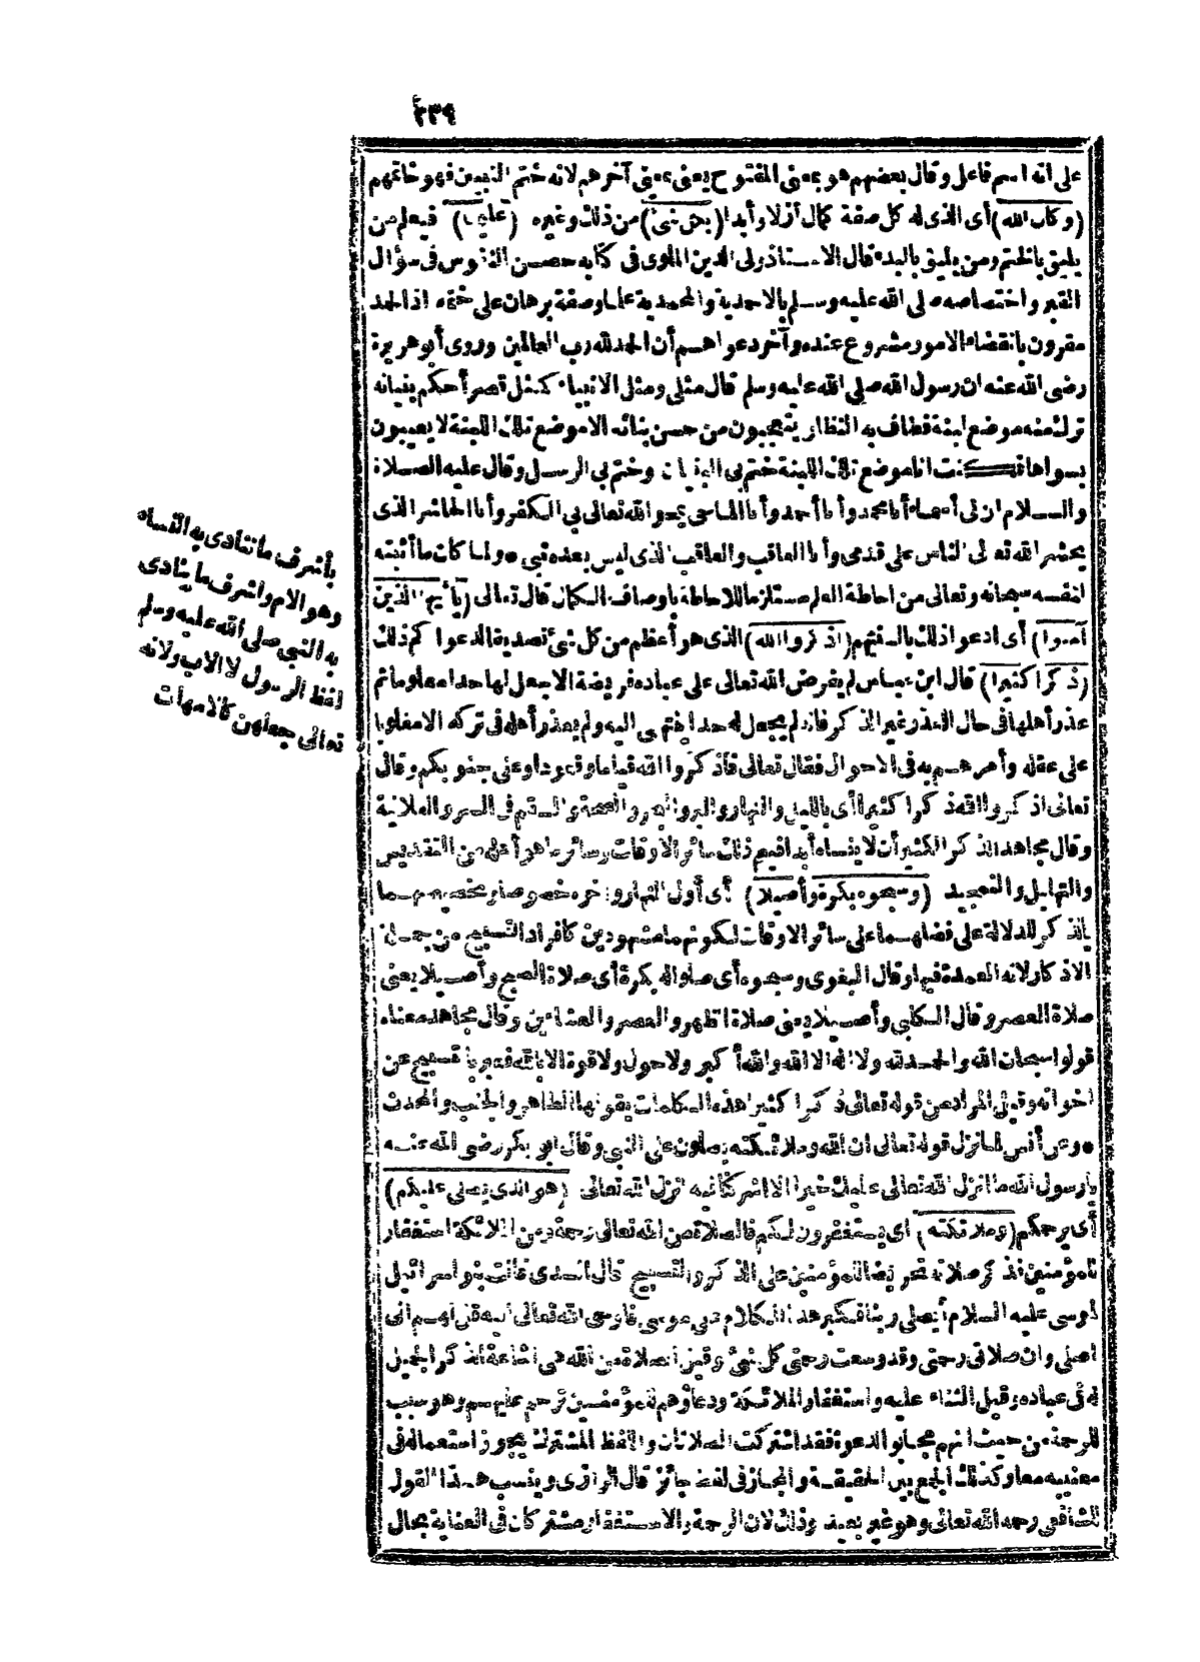 ٢٣٩
على أنه اسم فاعل وقال بعضهم هو بمعنى المفتوح يعنى بمعنى آخرهم لانه ختم النبيين فهو خاتمهم
(وكان الله) أى الذى له كل صفة كمال أزلا وأبدا (بكل شئ) من ذلك وغيره (عليما) فيعلم من
يليق بالختم ومن يليق بالبدء قال الاستاذ ولى الدين الملوى فى كتابه حصن النفوس فى سؤال
القبر واختصاصه صلى الله عليه وسلم بالاحمدية والمحمدية علما وصفة برهان على ختمه اذ الحمد
مقرون بانقضاء الامور مشروع عنده وآخر دعواهم أن الحمد لله رب العالمين وروى أبو هريرة
رضى الله عنه ان رسول الله صلى الله عليه وسلم قال مثلى ومثل الانبياء كمثل قصر أحكم بنيانه
ترك منه موضع لبنة فطاف به النظار يتعجبون من حسن بنائه الا موضع تلك اللبنة لا يعيبون
بسواها فكنت انا موضع تلك اللبنة ختم بى البنيان وختم بى الرسل وقال عليه الصلاة
والسلام ان لى أسماء أنا محمد وأنا أحمد وأنا الماحى يمحو الله تعالى بى الكفر وأنا الحاشر الذى
يحشر الله تعالى الناس على قدمى وأنا العاقب والعاقب الذى ليس بعده نبى * ولما كان ما أثبته
لنفسه سبحانه وتعالى من احاطة العلم مستلزما للاحاطة باوصاف الكمال قال تعالى (يا أيها الذين
آمنوا) أى ادعوا ذلك بالسنتهم (اذكروا الله) الذى هو أعظم من كل شئ تصديقا لدعواكم ذلك
(ذكرا كثيرا) قال ابن عباس لم يفرض الله تعالى على عباده فريضة الا جعل لها حدا معلوما ثم
عذر أهلها فى حال العذر غير الذكر فانه لم يجعل له حدا ينتهى اليه ولم يعذر أهله فى تركه الا مغلوبا
على عقله وأمرهم به فى الاحوال فقال تعالى فاذكروا الله قياما وقعودا وعلى جنوبكم وقال
تعالى اذكروا الله ذكرا كثيرا أى بالليل والنهار والبر والبحر والصحة والسقم فى السر والعلانية
وقال مجاهد الذكر الكثير أن لا ينساه أبدا فيعم ذلك سائر الاوقات وسائر ما هو أهله من التقديس
والتهليل والتمجيد (وسبحوه بكرة وأصيلا) أى أول النهار وآخره خصوصا وتخصيصهما
بالذكر للدلالة على فضلهما على سائر الاوقات لكونهما مشهودين كافراد التسبيح من جملة
الاذكار لانه العمدة فيها وقال البغوى وسبحوه أى صلوا له بكرة أى صلاة الصبح وأصيلا يعنى
صلاة العصر وقال الكلبى وأصيلا يعنى صلاة الظهر والعصر والعشاءين وقال مجاهد معناه
قولوا سبحان الله والحمد لله ولا اله الا الله والله أكبر ولا حول ولا قوة الا بالله فعبر بالتسبيح عن
اخوانه وقيل المراد من قوله تعالى ذكرا كثيرا هذه الكلمات يقولها الطاهر والجنب والمحدث
* وعن أنس لما نزل قوله تعالى ان الله وملائكته يصلون على النبى وقال ابو بكر رضى الله عنه
يا رسول الله ما انزل الله تعالى عليك خيرا الا اشركنا فيه انزل الله تعالى (هو الذى يصلى عليكم)
أى يرحمكم (وملائكته) أى يستغفرون لكم فالصلاة من الله تعالى رحمة ومن الملائكة استغفار
للمؤمنين فذكر صلاته تحريضا للمؤمنين على الذكر والتسبيح قال السدى قالت بنو اسرائيل
لموسى عليه السلام أيصلى ربنا فكبر هذا الكلام على موسى فاوحى الله تعالى اليه قل لهم انى
اصلى وان صلاتى رحمتى وقد وسعت رحمتى كل شئ وقيل الصلاة من الله هى اشاعة الذكر الجميل
له فى عباده وقيل الثناء عليه واستغفار الملائكة ودعاؤهم للمؤمنين ترحم عليهم وهو سبب
للرحمة من حيث انهم مجابو الدعوة فقد اشتركت الصلاتان واللفظ المشترك يجوز استعماله فى
معنييه معا وكذلك الجمع بين الحقيقة والمجاز فى لفظ جائز قال الرازى وينسب هذا القول
للشافعى رحمه الله تعالى وهو غير بعيد وذلك لان الرحمة والاستغفار مشتركان فى العناية بحال
بأشرف ما تنادى به النساء
وهو الام واشرف ما ينادى
به النبى صلى الله عليه وسلم
لفظ الرسول لا الاب ولانه
تعالى جعلهن كالامهات